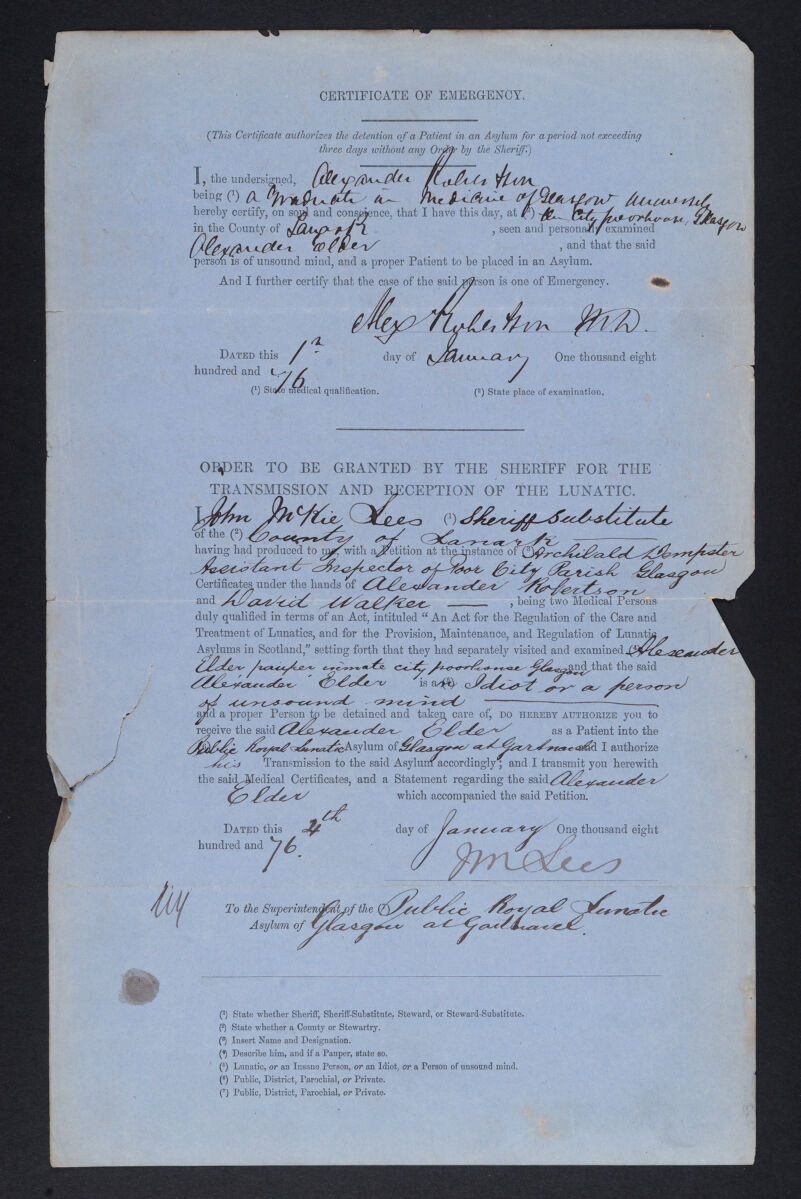 CERTIFICATE OF EMERGENCY.
(This Certificate authorizes the detention of a Patient in an Asylum for a period not exceeding
three days without any Order by the Sheriff.)
I, the undersigned, Alexander Robertson
being (1) a Graduate in Medicine of Glasgow University
hereby certify, on soul and conscience, that I have this day, at (2) the City poorhouse, Glasgow
in the County of Lanark , seen and personally examined
Alexander Elder , and that the said
person is of unsound mind, and a proper Patient to be placed in an Asylum.
And I further certify that the case of the said person is one of Emergency.
Alex Robertson M.D.
DATED this 1st day of January One thousand eight
hundred and '76
(1) State medical qualification. (2) State place of examination.
ORDER TO BE GRANTED BY THE SHERIFF FOR THE
TRANSMISSION AND RECEPTION OF THE LUNATIC.
I John McKie Lees (1) Sheriff Substitute
of the (2) County of Lanark
having had produced to me, with a Petition at the instance of (3) Archibald Dempster
Assistant Inspector of Poor City Parish Glasgow
Certificates under the hands of Alexander Robertson
and David Walker , being two Medical Persons
duly qualified in terms of an Act, intituled "An Act for the Regulation of the Care and
Treatment of Lunatics, and for the Provision, Maintenance, and Regulation of Lunatic
Asylums in Scotland," setting forth that they had separately visited and examined (4) Alexander
Elder, pauper inmate city poorhouse Glasgow and that the said
Alexander Elder is a (5) Idiot or a person
of unsound mind
and a proper Person to be detained and taken care of, DO HEREBY AUTHORIZE you to
receive the said Alexander Elder as a Patient into the
(6) Public Royal Lunatic Asylum of Glasgow at Gartnavel and I authorize
his Transmission to the said Asylum accordingly; and I transmit you herewith
the said Medical Certificates, and a Statement regarding the said Alexander
Elder which accompanied the said Petition.
DATED this 4th day of January One thousand eight
hundred and 76.
JM Lees
To the Superintendent of the (7) Public Royal Lunatic
Asylum of Glasgow at Gartnavel.
(1) State whether Sheriff, Sheriff-Substitute, Steward, or Steward-Substitute.
(2) State whether a County or Stewartry.
(3) Insert Name and Designation.
(4) Describe him, and if a Pauper, state so.
(5) Lunatic, or an Insane Person, or an Idiot, or a Person of unsound mind.
(6) Public, District, Parochial, or Private.
(7) Public, District, Parochial, or Private.